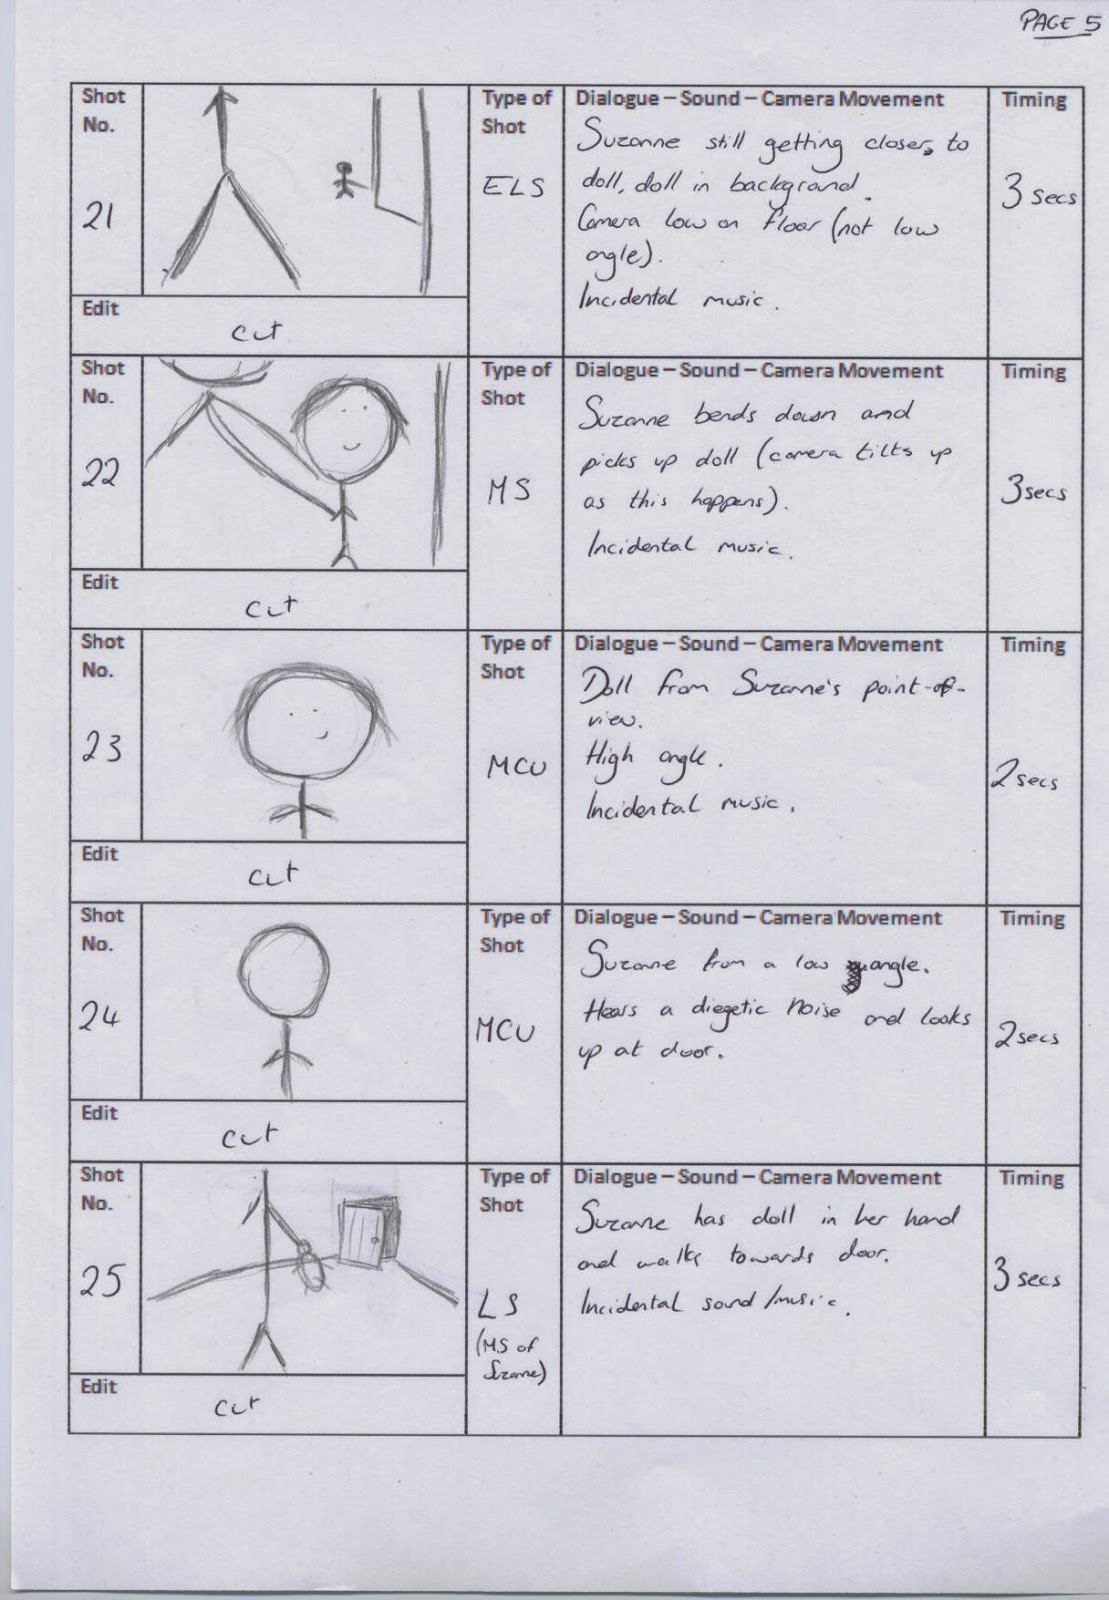 PAGE 5
Shot
No.
21
Type of
Shot
ELS
Dialogue – Sound – Camera Movement
Suzanne still getting closer to
doll, doll in background.
Camera low on floor (not low
angle).
Incidental music.
Timing
3 secs
Edit
cut
Shot
No.
22
Type of
Shot
MS
Dialogue – Sound – Camera Movement
Suzanne bends down and
picks up doll (camera tilts up
as this happens).
Incidental music.
Timing
3secs
Edit
cut
Shot
No.
23
Type of
Shot
MCU
Dialogue – Sound – Camera Movement
Doll from Suzanne's point-of-
view.
High angle.
Incidental music.
Timing
2 secs
Edit
cut
Shot
No.
24
Type of
Shot
MCU
Dialogue – Sound – Camera Movement
Suzanne from a low angle.
Hears a diegetic noise and looks
up at door.
Timing
2 secs
Edit
cut
Shot
No.
25
Type of
Shot
LS
(MS of
Suzanne)
Dialogue – Sound – Camera Movement
Suzanne has doll in her hand
and walks towards door.
Incidental sound/music.
Timing
3 secs
Edit
cut